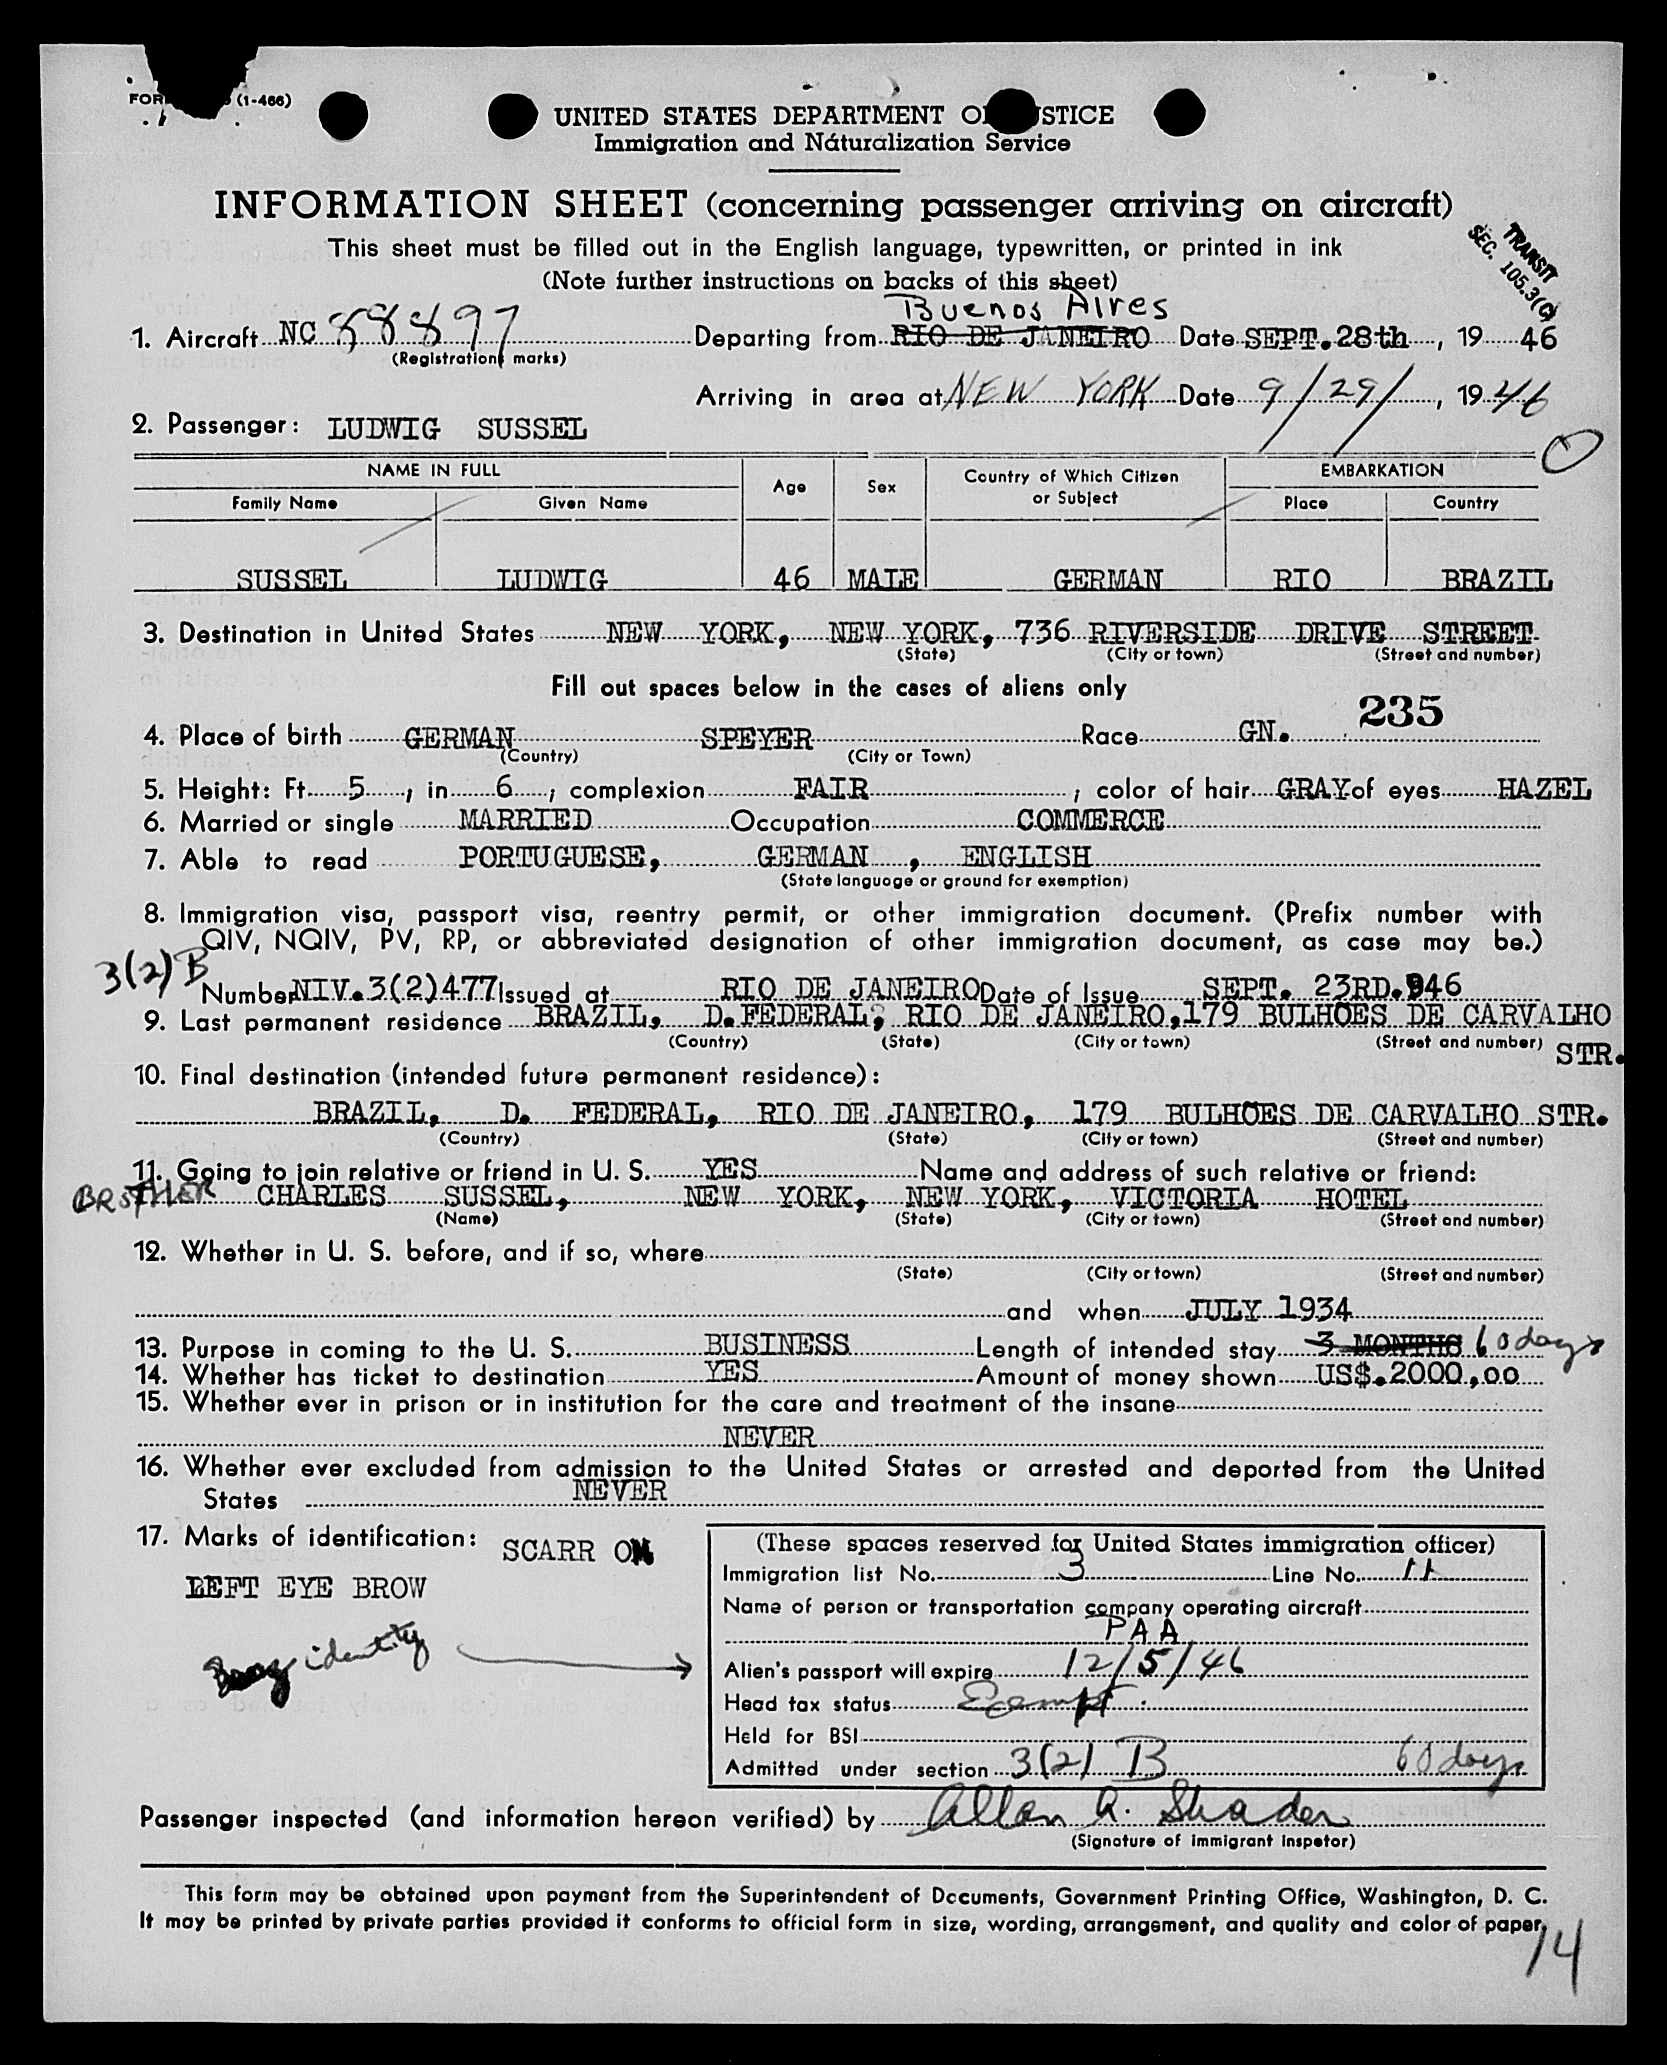 (1-466)
UNITED STATES DEPARTMENT O STICE
Immigration and Naturalization Service
INFORMATION SHEET (concerning passenger arriving on aircraft)
This sheet must be filled out in the English language, typewritten, or printed in ink
(Note further instructions on backs of this sheet)
TRANSIT
SEC. 105.3(C)
Buenos Aires
1. Aircraft NC 88897 Departing from RIO DE JANEIRO Date SEPT. 28th, 19 46
(Registration marks)
Arriving in area at NEW YORK Date 9/29/, 19 46
2. Passenger: LUDWIG SUSSEL
NAME IN FULL Age Sex Country of Which Citizen or Subject EMBARKATION
Family Name Given Name Place Country
SUSSEL LUDWIG 46 MALE GERMAN RIO BRAZIL
3. Destination in United States NEW YORK, NEW YORK, 736 RIVERSIDE DRIVE STREET
(State) (City or town) (Street and number)
Fill out spaces below in the cases of aliens only
235
4. Place of birth GERMAN SPEYER Race GN.
(Country) (City or Town)
5. Height: Ft. 5, in 6; complexion FAIR; color of hair GRAY of eyes HAZEL
6. Married or single MARRIED Occupation COMMERCE
7. Able to read PORTUGUESE, GERMAN, ENGLISH
(State language or ground for exemption)
8. Immigration visa, passport visa, reentry permit, or other immigration document. (Prefix number with
QIV, NQIV, PV, RP, or abbreviated designation of other immigration document, as case may be.)
3(2) B
Number NIV.3(2)477 Issued at RIO DE JANEIRO Date of Issue SEPT. 23RD.946
9. Last permanent residence BRAZIL, D.FEDERAL, RIO DE JANEIRO, 179 BULHÕES DE CARVALHO
(Country) (State) (City or town) (Street and number) STR.
10. Final destination (intended future permanent residence):
BRAZIL, D. FEDERAL, RIO DE JANEIRO, 179 BULHÕES DE CARVALHO STR.
(Country) (State) (City or town) (Street and number)
11. Going to join relative or friend in U. S. YES Name and address of such relative or friend:
BROTHER CHARLES SUSSEL, NEW YORK, NEW YORK, VICTORIA HOTEL
(Name) (State) (City or town) (Street and number)
12. Whether in U. S. before, and if so, where
(State) (City or town) (Street and number)
and when JULY 1934
13. Purpose in coming to the U. S. BUSINESS Length of intended stay 3 MONTHS 60 days
14. Whether has ticket to destination YES Amount of money shown US$.2000,00
15. Whether ever in prison or in institution for the care and treatment of the insane
NEVER
16. Whether ever excluded from admission to the United States or arrested and deported from the United
States NEVER
17. Marks of identification: SCARR ON
LEFT EYE BROW
identity
(These spaces reserved for United States immigration officer)
Immigration list No. 3 Line No. 11
Name of person or transportation company operating aircraft
PAA
Alien's passport will expire 12/5/46
Head tax status Exempt
Held for BSI
Admitted under section 3(2) B 60 days
Passenger inspected (and information hereon verified) by Allan A. Shader
(Signature of immigrant inspetor)
This form may be obtained upon payment from the Superintendent of Documents, Government Printing Office, Washington, D. C.
It may be printed by private parties provided it conforms to official form in size, wording, arrangement, and quality and color of paper.
14